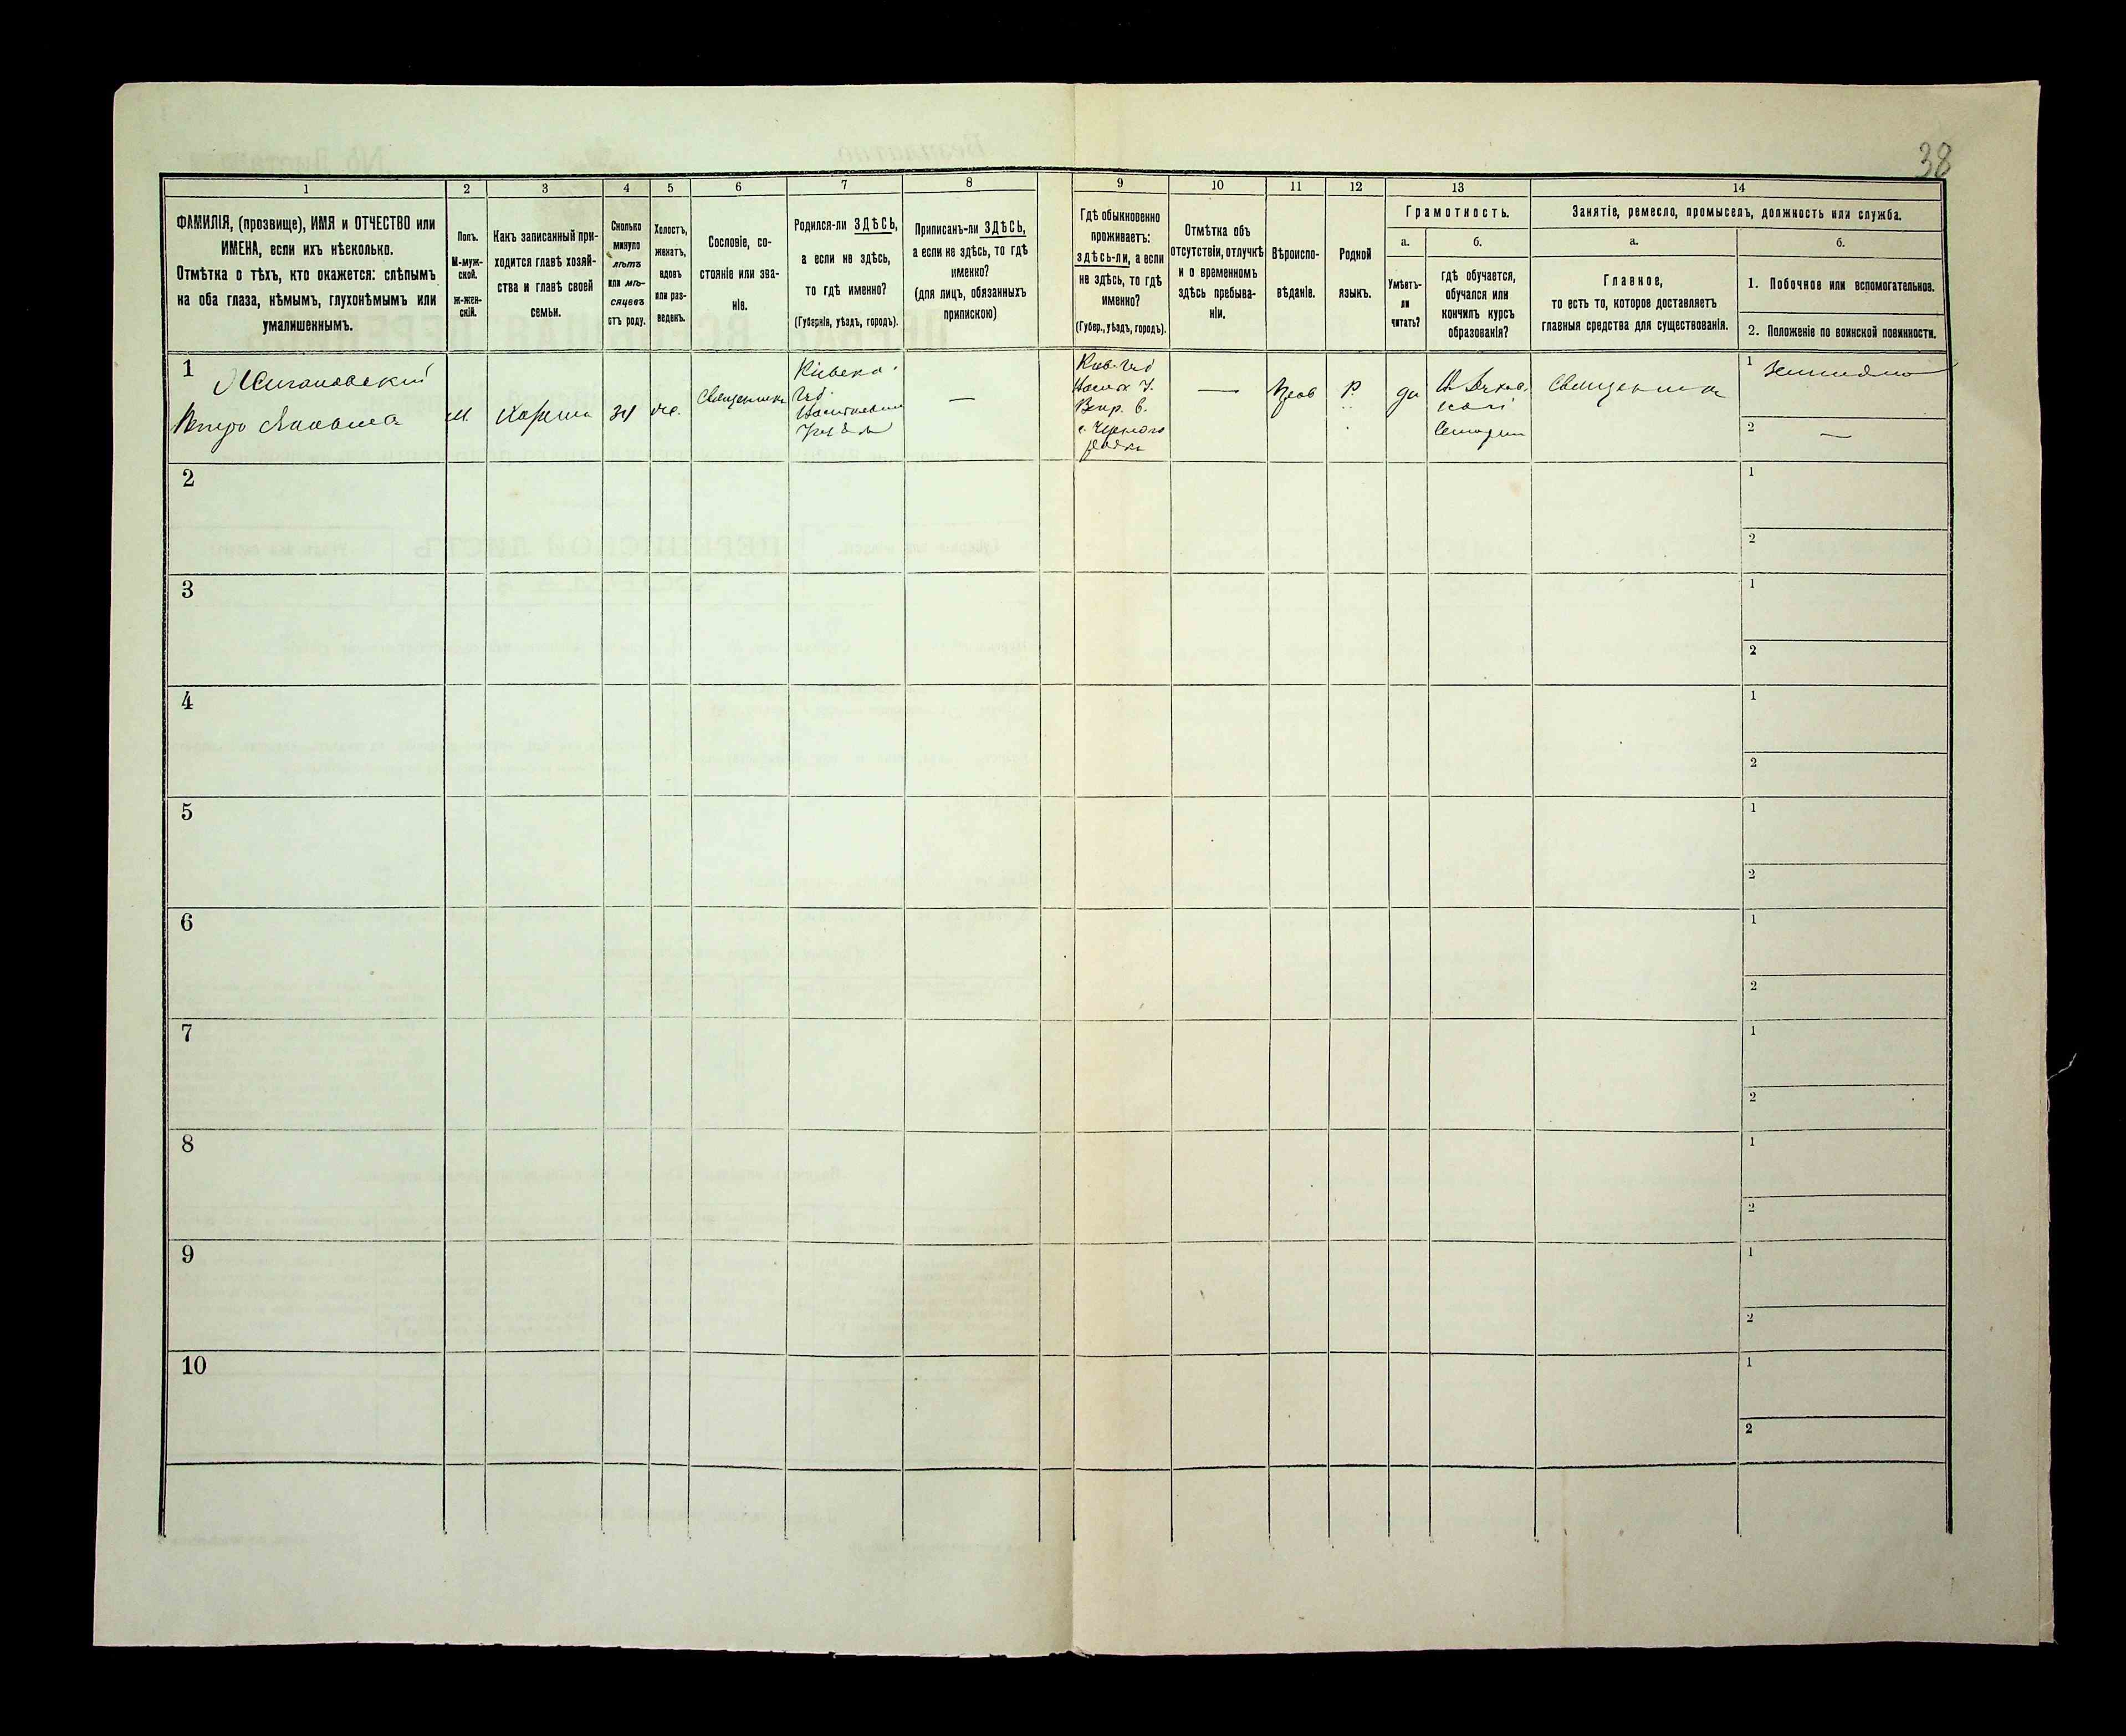 38
1
2
3
4
5
6
7
8
9
10
11
12
13
14
ФАМИЛІЯ, (прозвище), ИМЯ и ОТЧЕСТВО или
ИМЕНА, если ихъ нѣсколько.
Отмѣтка о тѣхъ, кто окажется: слѣпымъ
на оба глаза, нѣмымъ, глухонѣмымъ или
умалишеннымъ.
Полъ.
М-муж-
ской.
ж-жен-
скій.
Какъ записанный при-
ходится главѣ хозяй-
ства и главѣ своей
семьи.
Сколько
минуло
лѣтъ
или мѣ-
сяцевъ
отъ роду.
Холостъ,
женатъ,
вдовъ
или раз-
веденъ.
Сословіе, со-
стояніе или зва-
ніе.
Родился-ли ЗДѢСЬ,
а если не здѣсь,
то гдѣ именно?
(Губернія, уѣздъ, городъ).
Приписанъ-ли ЗДѢСЬ,
а если не здѣсь, то гдѣ
именно?
(для лицъ, обязанныхъ
припискою)
Гдѣ обыкновенно
проживаетъ:
здѣсь-ли, а если
не здѣсь, то гдѣ
именно?
(Губер., уѣздъ, городъ).
Отмѣтка объ
отсутствіи, отлучкѣ
и о временномъ
здѣсь пребыва-
ніи.
Вѣроиспо-
вѣданіе.
Родной
языкъ.
Грамотность.
а.
Умѣетъ-
ли
читать?
б.
гдѣ обучается,
обучался или
кончилъ курсъ
образованія?
Занятіе, ремесло, промыселъ, должность или служба.
а.
Главное,
то есть то, которое доставляетъ
главныя средства для существованія.
б.
1. Побочное или вспомогательное.
2. Положеніе по воинской повинности.
1
Петро
м.
34
Священникъ
Кіевск.
Губ.
—
Кіев. Губ
—
Прав
Р.
да
Священникъ
1
2
—
2
1
2
3
1
2
4
1
2
5
1
2
6
1
2
7
1
2
8
1
2
9
1
2
10
1
2